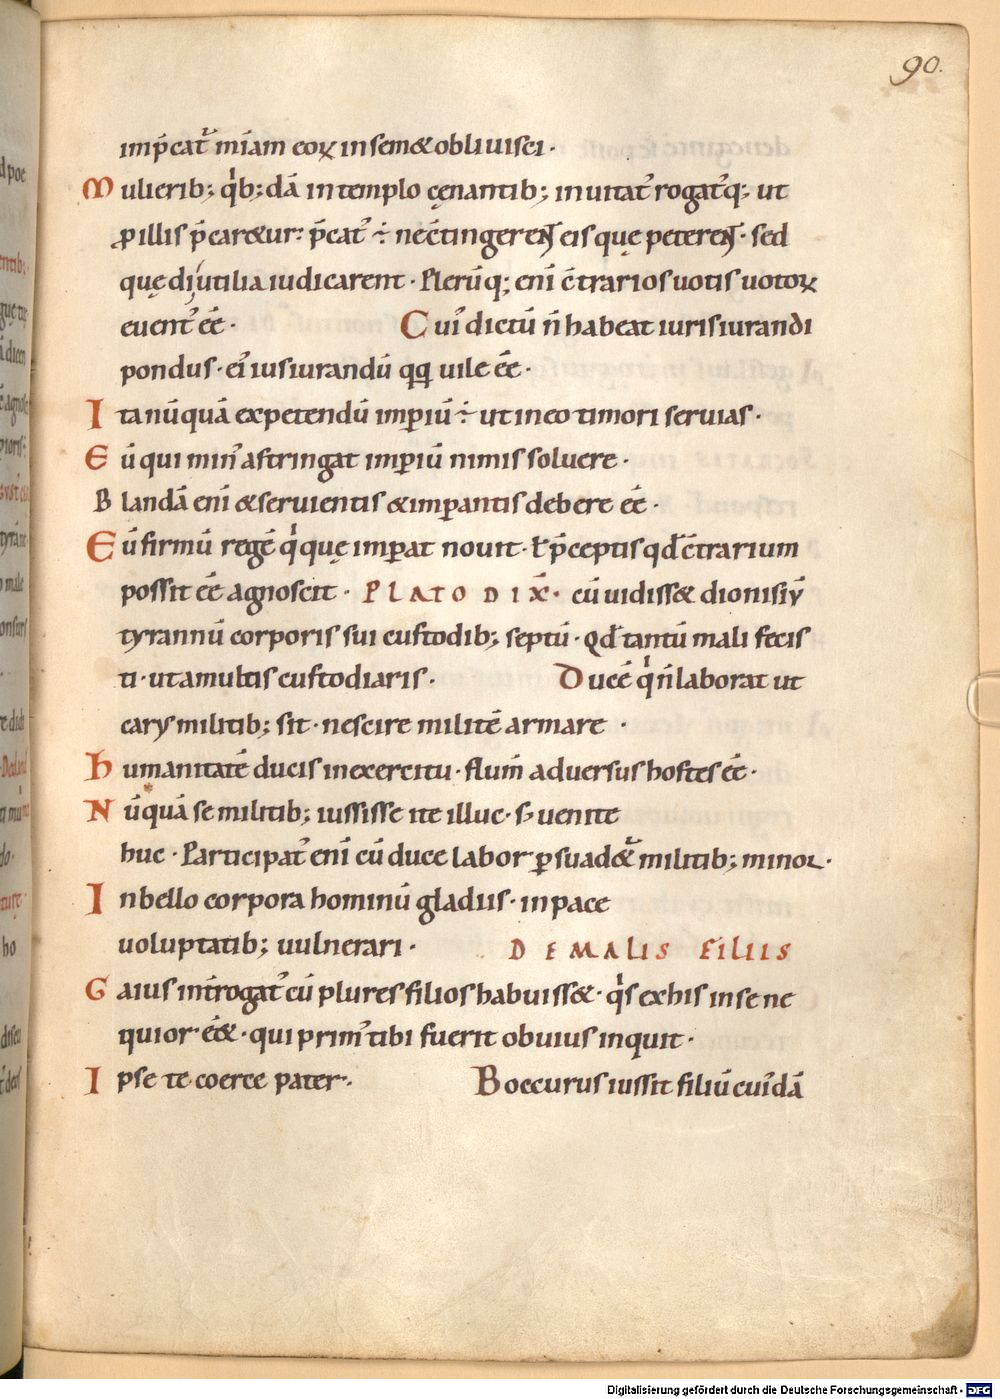 90.
imp̄cat᷑ mı̄am eoꝝ in sem& obliuisci·
Mulierib; qͥb; dā in templo cęnantib; inuitat᷑ rogat᷑q; ut
ꝓ illis p̄car&ur: p̄cat᷑ ÷ ne c̄tingerent eis quę peterent· sed
quę dij utilia iudicarent· Plerūq; enī c̄trarios uotis uotoꝝ
euent᷑ eē· Cui᷑ dictū n̄ habeat iurisiurandi
pondus· ei᷑ iusiurandū qͣqͣ uile eē·
Ita nūquā expetendū imꝑiū ÷ ut in eo timori seruias·
Eū qui min᷑ astringat imꝑiū nimis soluere·
Blandā enī & seruientis & imꝑantis debere eē·
Eū firmū regē qͥ quę imꝑat nouit· ł p̄ceptis qđ c̄trarium
possit eē agnoscit· PLATO DIX̄· cū uidiss& dionisiꝰ
tyrannū corporis sui custodib; septū· Qđ tantū mali fecis
ti· ut a multis custodiaris· Ducē qͥ n̄ laborat ut
carꝰ militib; sit· nescire militē armare·
Humanitatē ducis in exercitu· flum̄ aduersus hostes eē·
Nūquā se militib; iussisse ite illuc· s; uenite
huc· Participat᷑ enī cū duce labor ꝑsuad&᷑ militib; minor·
In bello corpora hominū gladiis· in pace
uoluptatib; uulnerari· DE MALIS FILIIS
Gaius int̄rogat᷑ cū plures filios habuiss&· qͥs ex his in se ne
quior eē&· qui prim᷑ tibi fuerit obuius inquit·
Ipse te coerce pater· Boccurus iussit filiū cui᷑dā
Digitalisierung gefördert durch die Deutsche Forschungsgemeinschaft - DFG